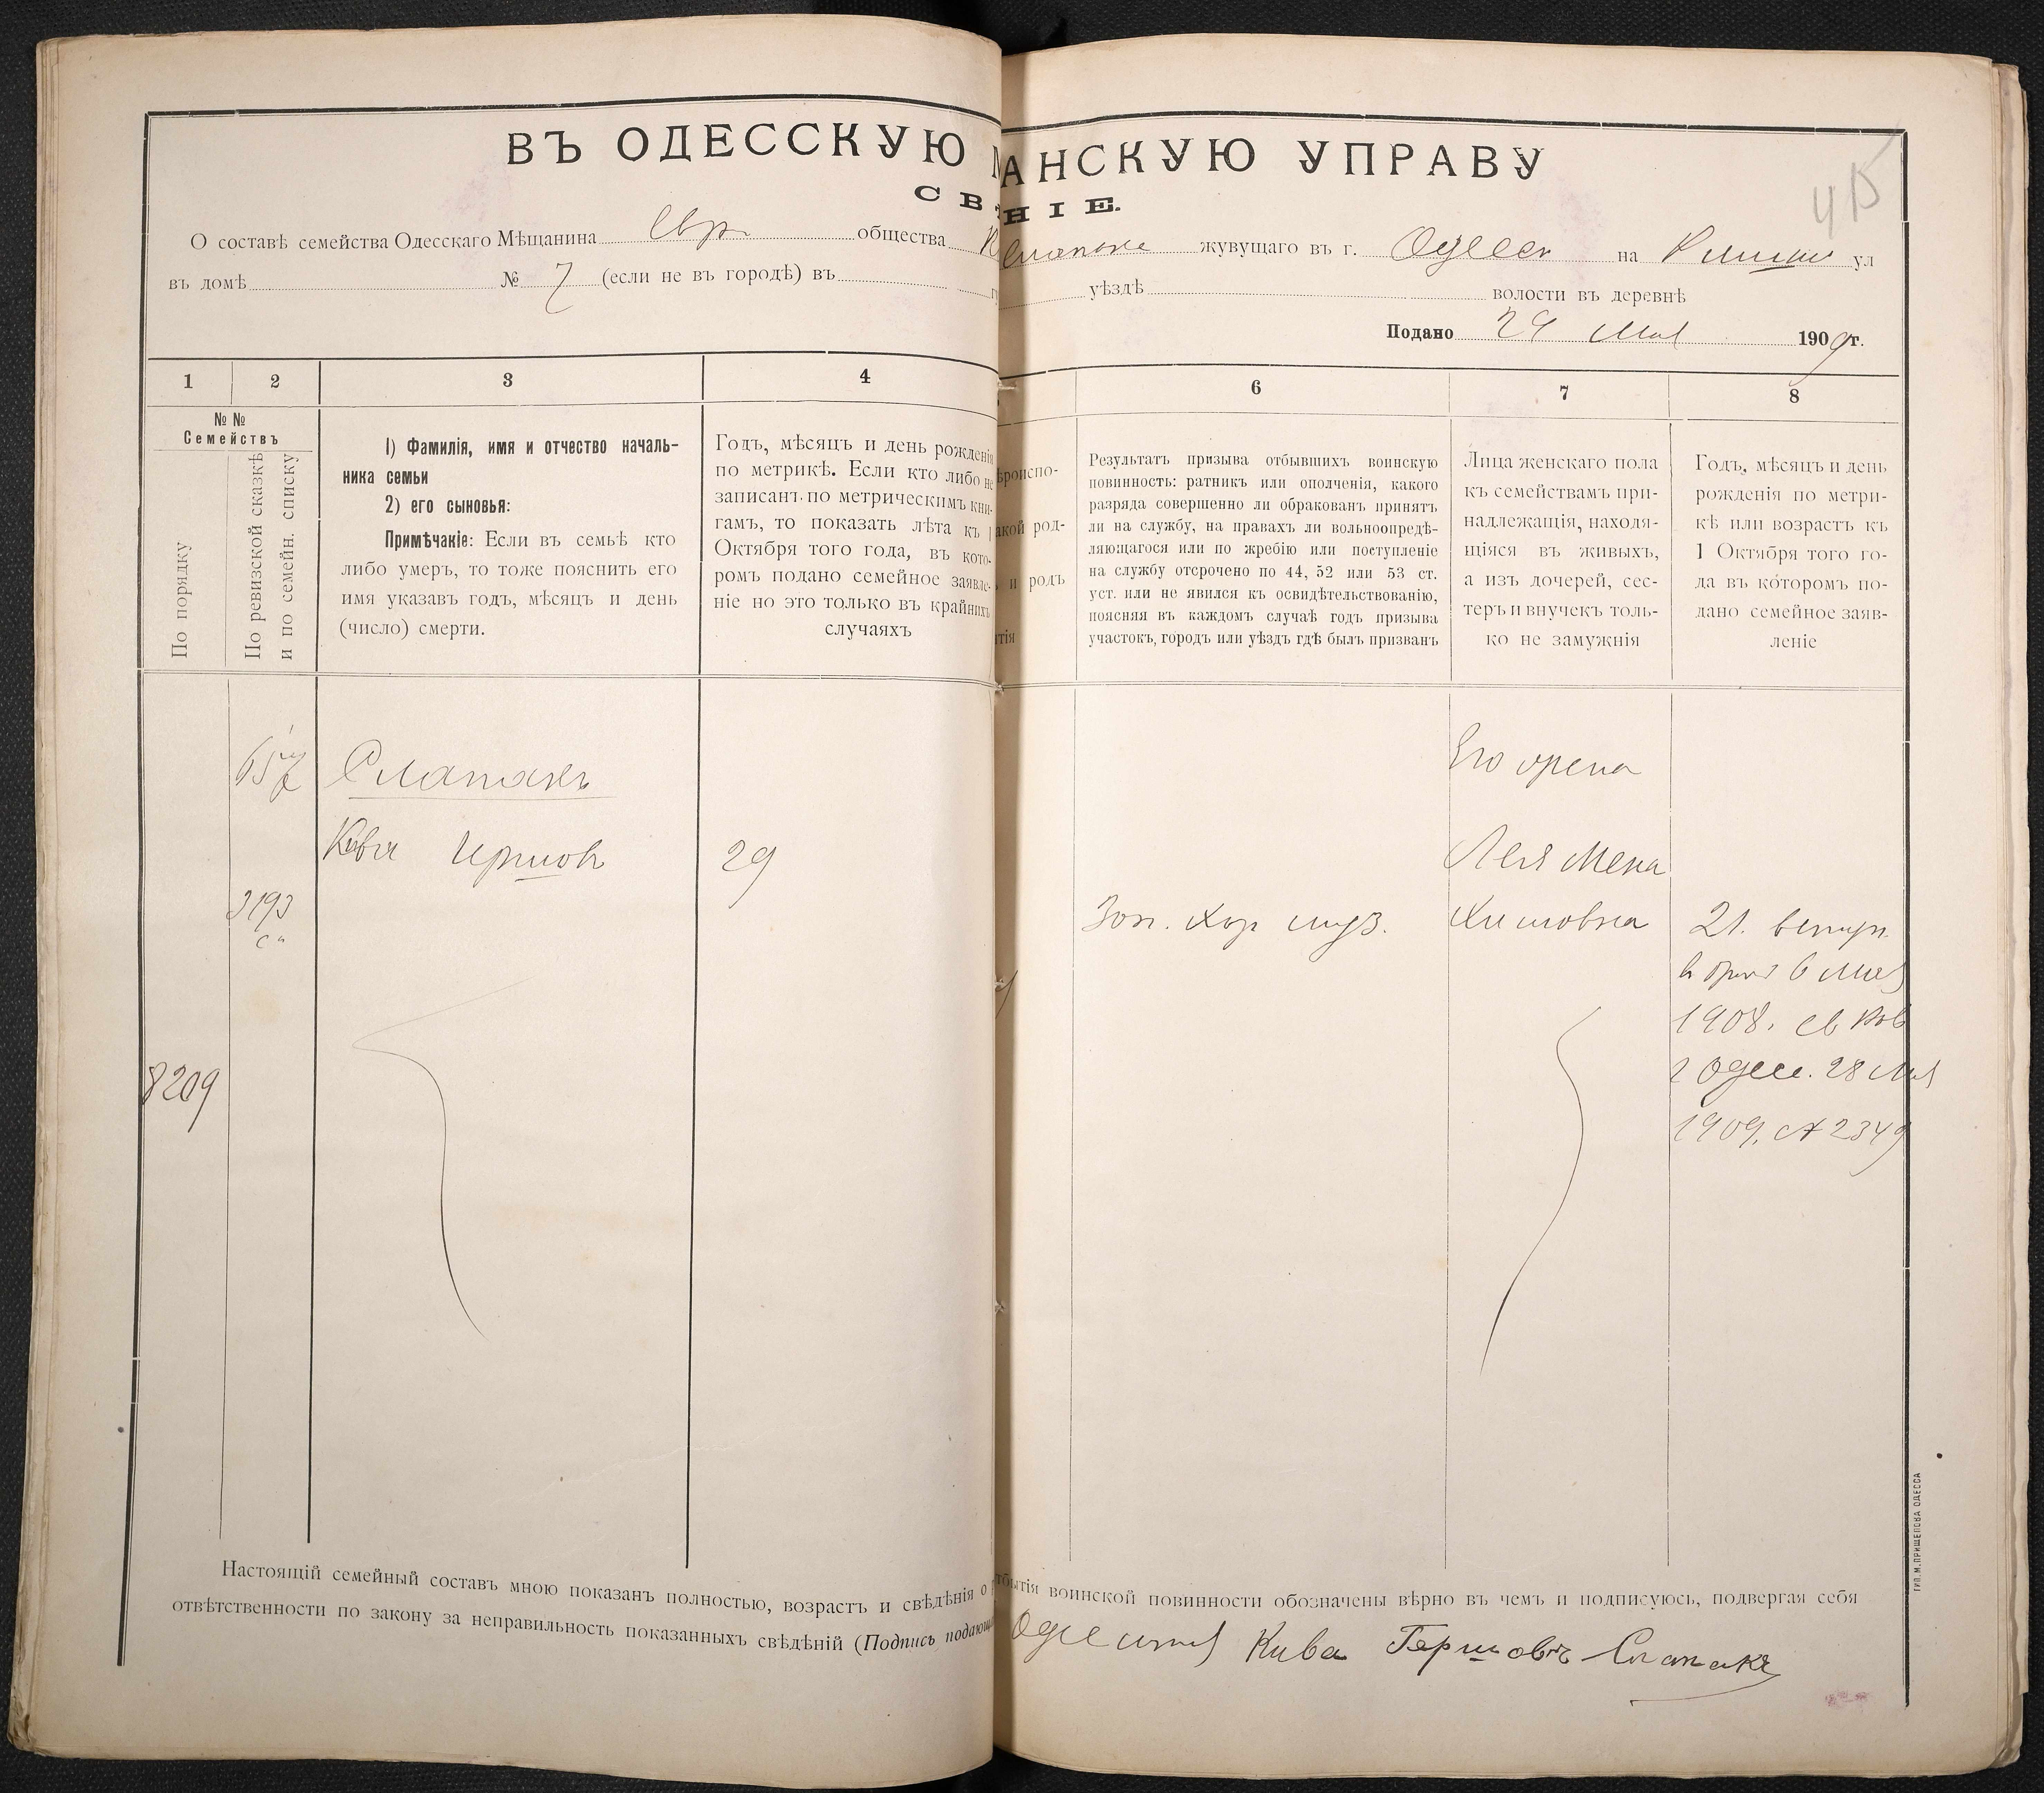 ВЪ ОДЕССКУЮ М АНСКУЮ УПРАВУ
СВ НІЕ.
415
О составѣ семейства Одесскаго Мѣщанина Евр. общества К Спапака жувущаго въ г. Одессѣ на ул
въ домѣ № 7 (если не въ городѣ) въ уѣздѣ волости въ деревнѣ
Подано 29 Мая 1909 г.
1 2 3 4 6 7 8
№ №
Семействъ
По порядку
По ревизской сказкѣ
и по семейн. списку
1) Фамилія, имя и отчество началь-
ника семьи
2) его сыновья:
Примѣчаніе: Если въ семьѣ кто
либо умеръ, то тоже пояснить его
имя указавъ годъ, мѣсяцъ и день
(число) смерти.
Годъ, мѣсяцъ и день рожденія
по метрикѣ. Если кто либо не
записанъ по метрическимъ кни-
гамъ, то показать лѣта къ 1
Октября того года, въ кото-
ромъ подано семейное заявле-
ніе но это только въ крайнихъ
случаяхъ
ѣроиспо-
акой род-
и родъ
тія
Результатъ призыва отбывшихъ воинскую
повинность: ратникъ или ополченія, какого
разряда совершенно ли обракованъ принятъ
ли на службу, на правахъ ли вольноопредѣ-
ляющагося или по жребію или поступленіе
на службу отсрочено по 44, 52 или 53 ст.
уст. или не явился къ освидѣтельствованію,
поясняя въ каждомъ случаѣ годъ призыва
участокъ, городъ или уѣздъ гдѣ былъ призванъ
Лица женскаго пола
къ семействамъ при-
надлежащія, находя-
щіяся въ живыхъ,
а изъ дочерей, сес-
теръ и внучекъ толь-
ко не замужнія
Годъ, мѣсяцъ и день
рожденія по метри-
кѣ или возрастъ къ
1 Октября того го-
да въ которомъ по-
дано семейное заяв-
леніе
Спапакъ
Кива 29
3193
8209
Зап. муз.
Его
Лея Мена
21. вступ.
6 Мая
1908. св. Рав
г Одес. 28 Мая
1909, № 2349
Настоящій семейный составъ мною показанъ полностью, возрастъ и свѣдѣнія о тбытія воинской повинности обозначены вѣрно въ чемъ и подписуюсь, подвергая себя
отвѣтственности по закону за неправильность показанныхъ свѣдѣній (Подпись подающ Кива Гершовъ Спапакъ
ТИП. М. ПРИЩЕПОВА ОДЕССА